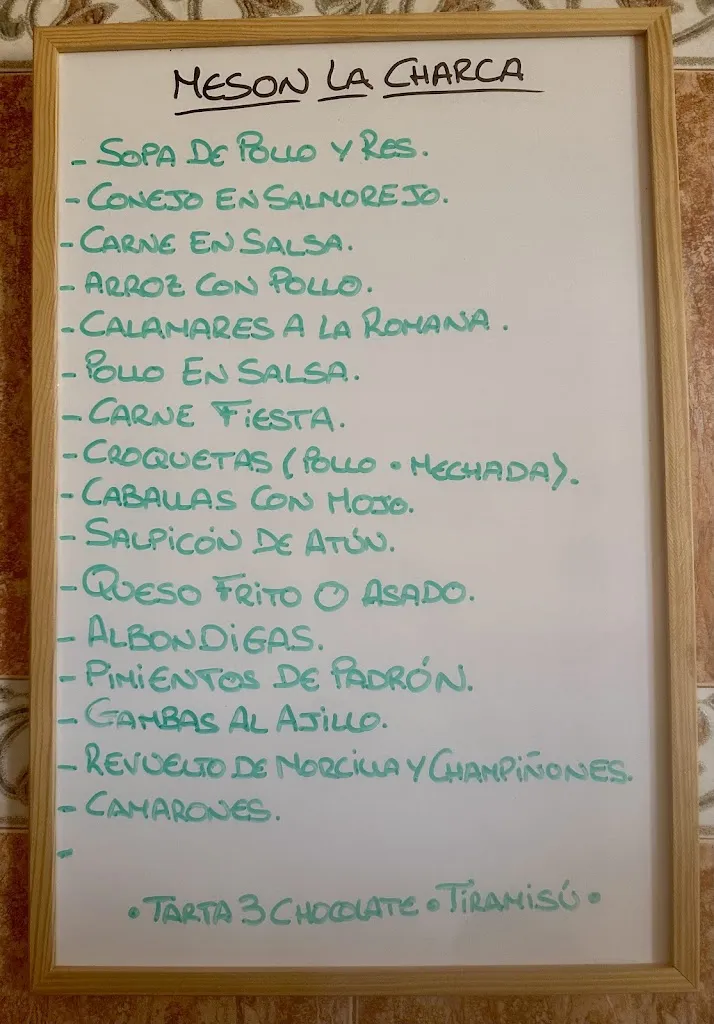 MESON LA CHARCA
- SOPA DE POLLO Y RES.
- CONEJO EN SALMOREJO.
- CARNE EN SALSA.
- ARROZ CON POLLO.
- CALAMARES A LA ROMANA.
- POLLO EN SALSA.
- CARNE FIESTA.
- CROQUETAS (POLLO • MECHADA).
- CABALLAS CON MOJO.
- SALPICÓN DE ATÚN.
- QUESO FRITO O ASADO.
- ALBONDIGAS.
- PIMIENTOS DE PADRÓN.
- GAMBAS AL AJILLO.
- REVUELTO DE MORCILLA Y CHAMPIÑONES.
- CAMARONES.
-
• TARTA 3 CHOCOLATE • TIRAMISÚ •